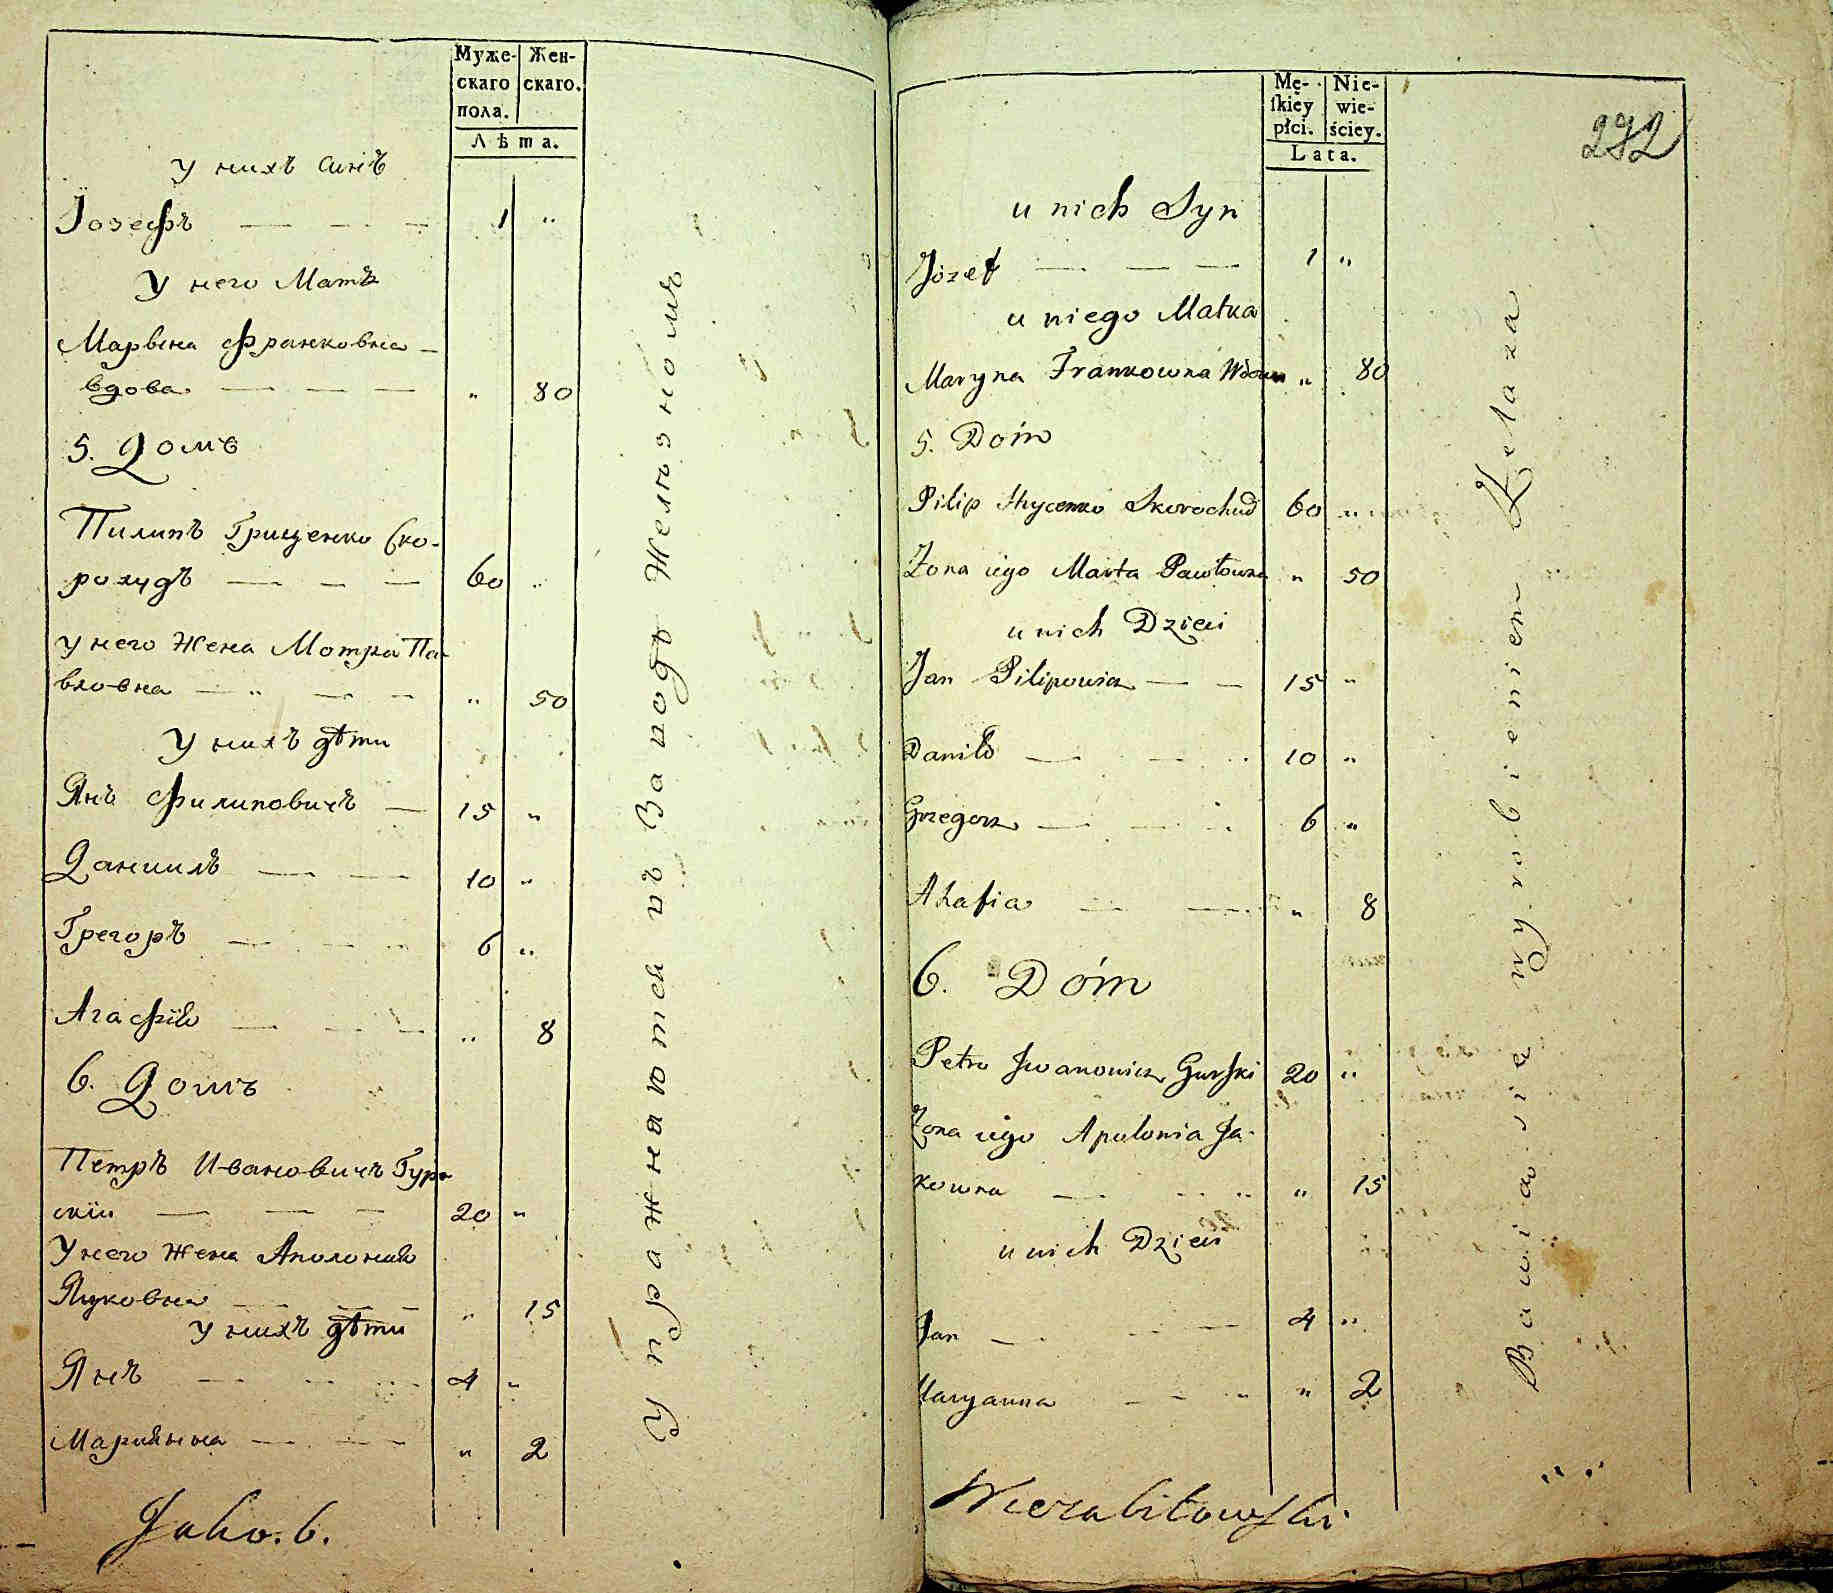 Муже-
скаго
пола.
Жен-
скаго.
Лѣта.
у нихъ синъ
Іозефъ 1 „
У него Матъ
Марвена Франковна
вдова „ 80
5. Домъ
Пилипъ Грищенко Ско-
рохудъ 60 „
у него Жена Мотра Па-
вловна „ 50
у нихъ дѣти
Янъ Филиповичъ 15 „
Даниилъ 10 „
Грегоръ 6 „
Агафія „ 8
6. Домъ
Петръ Ивановичъ Гур-
скіи 20 „
У него Жена Аполонія
Яцковна „ 15
у нихъ дѣти
Янъ 4 „
Марианна „ 2
Упражняются въ Заподъ Желѣзномъ
Jako. 6.
Mę-
ſkiey
płci.
Nie-
wie-
ściey.
Lata.
292
u nich Syn
Józef 1 „
u niego Matka
Maryna Frankowna Wdowa „ 80
5. Dóm
Pilip Hrycenko Skorochud 60 „
Żona iego Marta Pawłowna „ 50
u nich Dzieci
Jan Pilipowicz 15 „
Daniło 10 „
Grzegorz 6 „
Ahafia „ 8
6. Dóm
Petro Jwanowicz Gurſki 20 „
Żona iego Apolonia Ja-
kowna „ 15
u nich Dzieci
Jan 4 „
Maryanna „ 2
Bawią się wyrobieniem Żelaza
Niezabitowſki